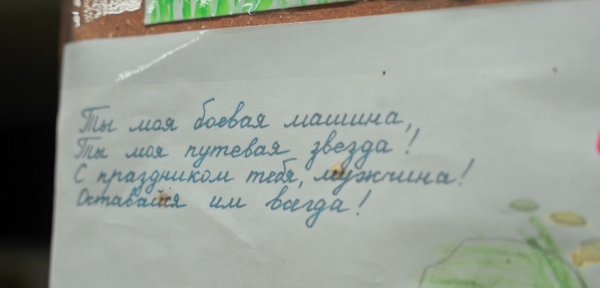 Ты моя боевая машина,
Ты моя путевая звезда!
С праздником тебя, мужчина!
Оставайся им всегда!